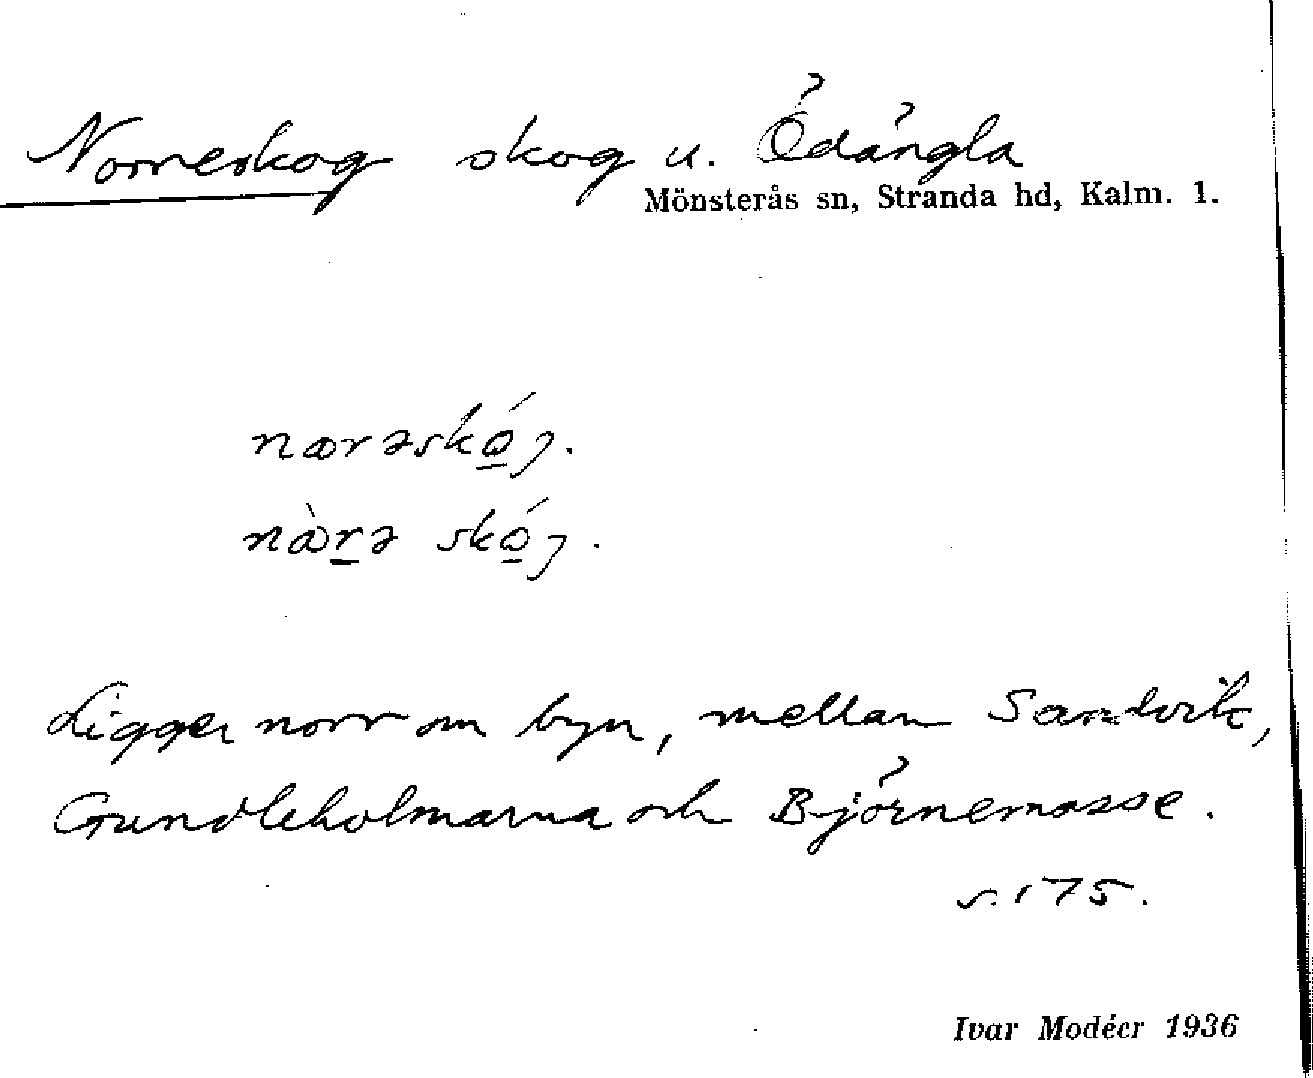 Norreskog skog u. Ödängla
Mönsterås sn, Stranda hd, Kalm. l.
nærəskǫ́ȷ.
næ̀r̲ə skǫ́ȷ.
Ligger norr om byn, mellan Sandvik,
Grundleholmarna och Björnemosse.
s. 175.
Ivar Modéer 1936